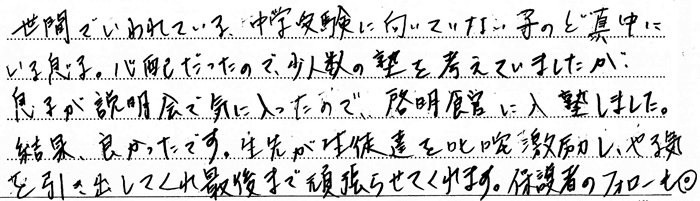 世間でいわれている、中学受験に向いていない子のど真中に
いる息子。心配だったので、少人数の塾を考えていましたが、
息子が説明会で気に入ったので、啓明館に入塾しました。
結果、良かったです。先生が生徒達を叱咤激励し、やる気
を引き出してくれ最後まで頑張らせてくれます。保護者のフォローも◎